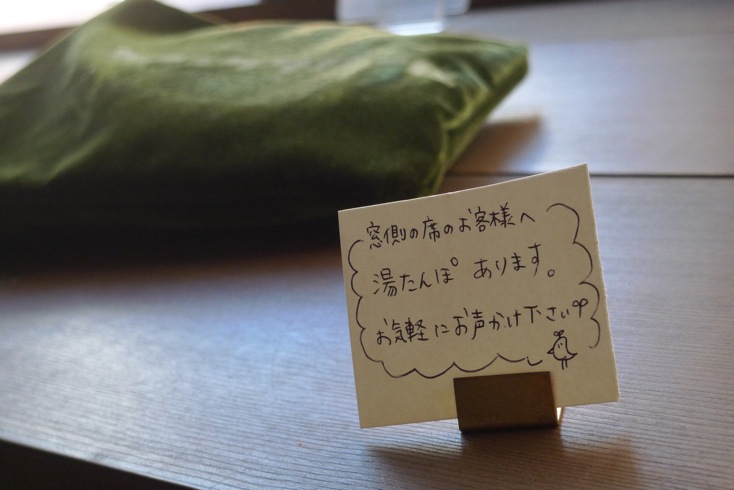 窓側の席のお客様へ
湯たんぽ あります。
お気軽にお声かけ下さい